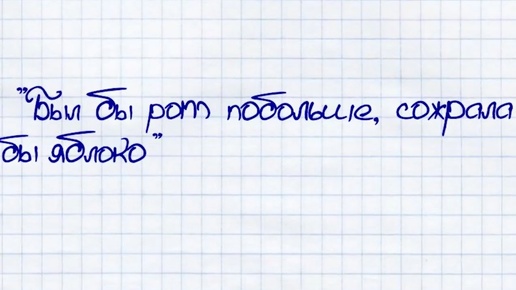 "Был бы рот побольше, сожрала
бы яблоко"